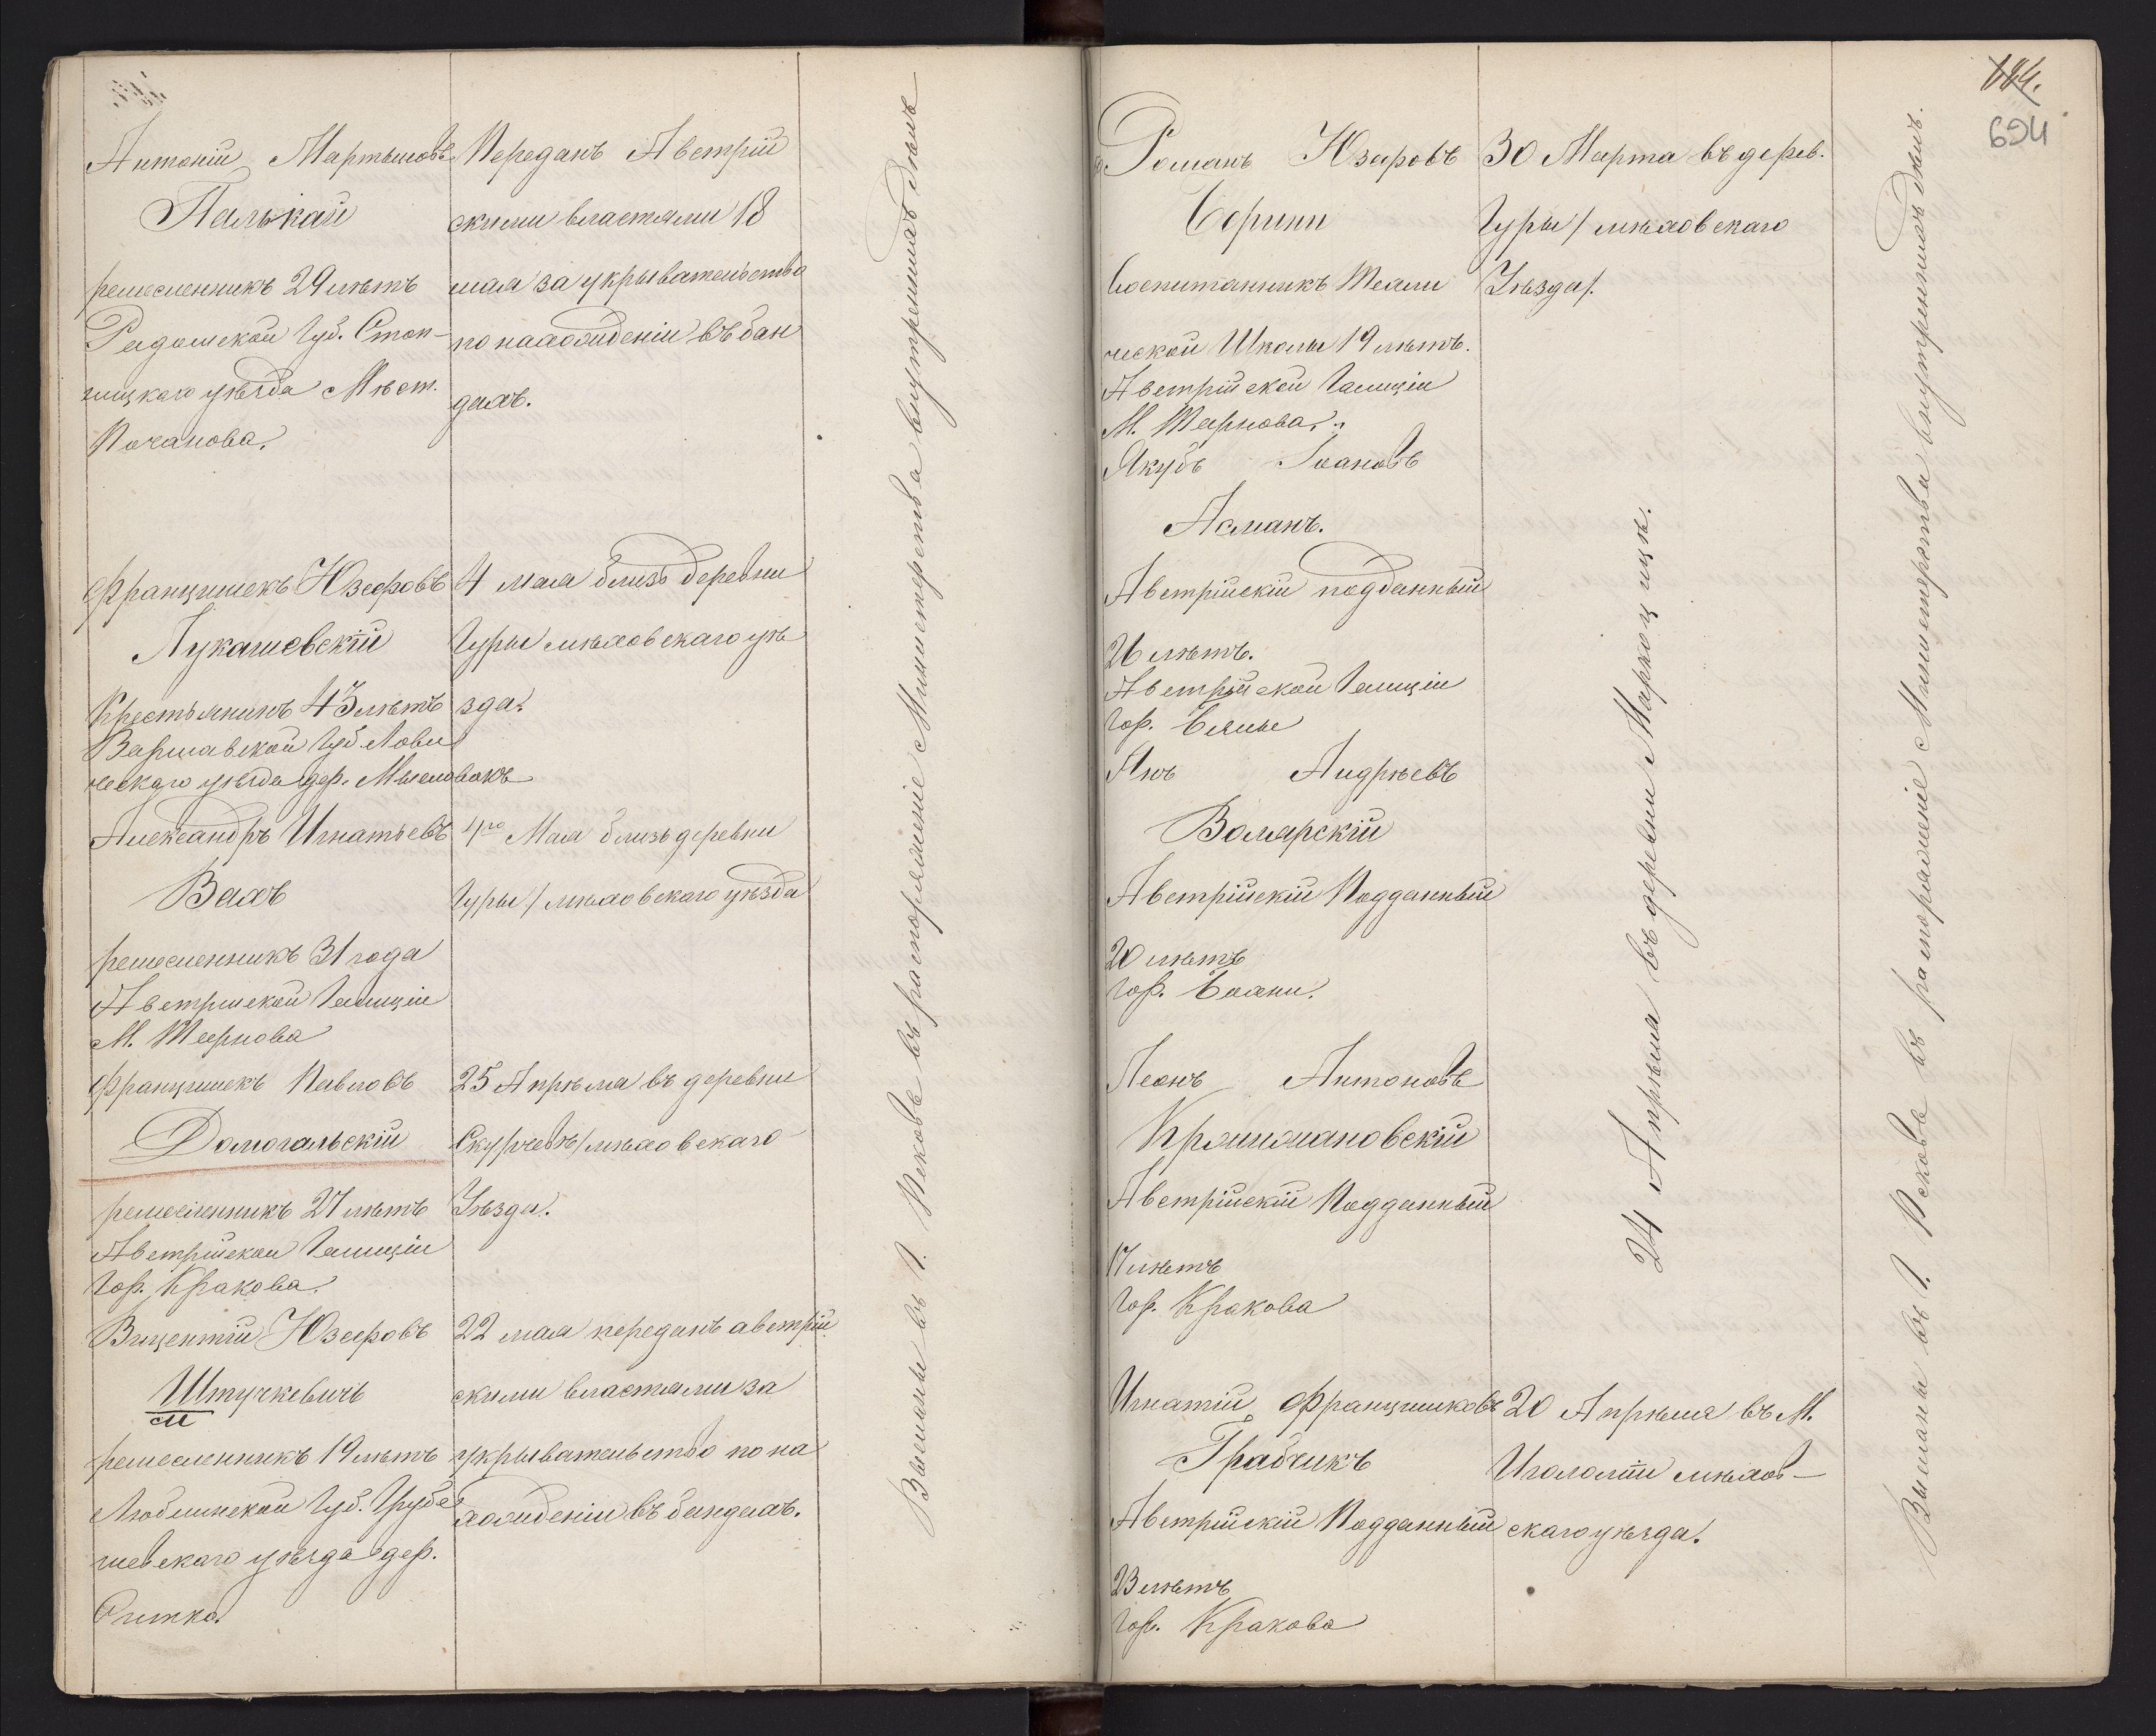 Антоній Мартыновъ
Палькай
ремесленникъ 29 лѣтъ
Радомской Губ. Стоп-
ницкаго уѣзда Мѣст.
Почанова.
Передан Австрій
скими властями 18
мая за укрывательство
по нахожденіи въ бан
дахъ.
Францишекъ Юзефовъ
Лукашевскій
Крестьянинъ 43 лѣтъ
Варшавской Губ Лови
ческаго уѣзда дер.
4 мая близъ деревни
Гуры мѣховскаго уѣ
зда.
Александръ Игнатьевъ
Вахъ
ремесленникъ 31 года
Австрійской Галиціи
М. Тернова
4го Мая близь деревни
Гуры / мѣховскаго уѣзда
Францишекъ Павловъ
Домогальскій
ремесленникъ 27 лѣтъ
Австрійской Галиціи
Гор. Кракова.
25 Апрѣля въ деревни
мѣховскаго
Уѣзда.
Вицентій Юзефовъ
Штучкевичъ
ремесленникъ 19 лѣтъ
Люблинской Губ. Грубе
шевскаго уѣзда дер.
22 мая переданъ австрій
скими властями за
укрывательство по на
хожденіи въ бандахъ.
Высланы въ Г. Псковъ въ распоряженіе Министерства внутреннихъ дѣлъ
184.
694
Романъ Юзефовъ
Воспитанникъ Техни
ческой Школы 19 лѣтъ.
Австрійской Галиціи
М. Тернова.
30 Марта въ дерев.
Гуры / мѣховскаго
Уѣзда /.
Якубъ Іоановъ
Асманъ.
Австрійскій подданный
26 лѣтъ.
Австрійской Галиціи
Гор.
Янъ Андрѣевъ
Волярскій
Австрійскій Подданный
20 лѣтъ
Гор.
Леонъ Антоновъ
Австрійскій Подданный
17 лѣтъ
Гор. Кракова
24 Апрѣля въ деревни Маркоцицѣ.
Игнатій Францишковъ
Грабчикъ
Австрійскій Подданный
23 лѣтъ
Гор. Кракова
20 Апрѣля въ М.
Иголоміи мѣхов-
скаго уѣзда.
Высланы въ Г. Псковъ въ распоряженіе Министерства внутреннихъ дѣлъ.